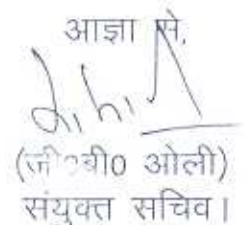 आज्ञा से,
(जी०बी० ओली)
संयुक्त सचिव।